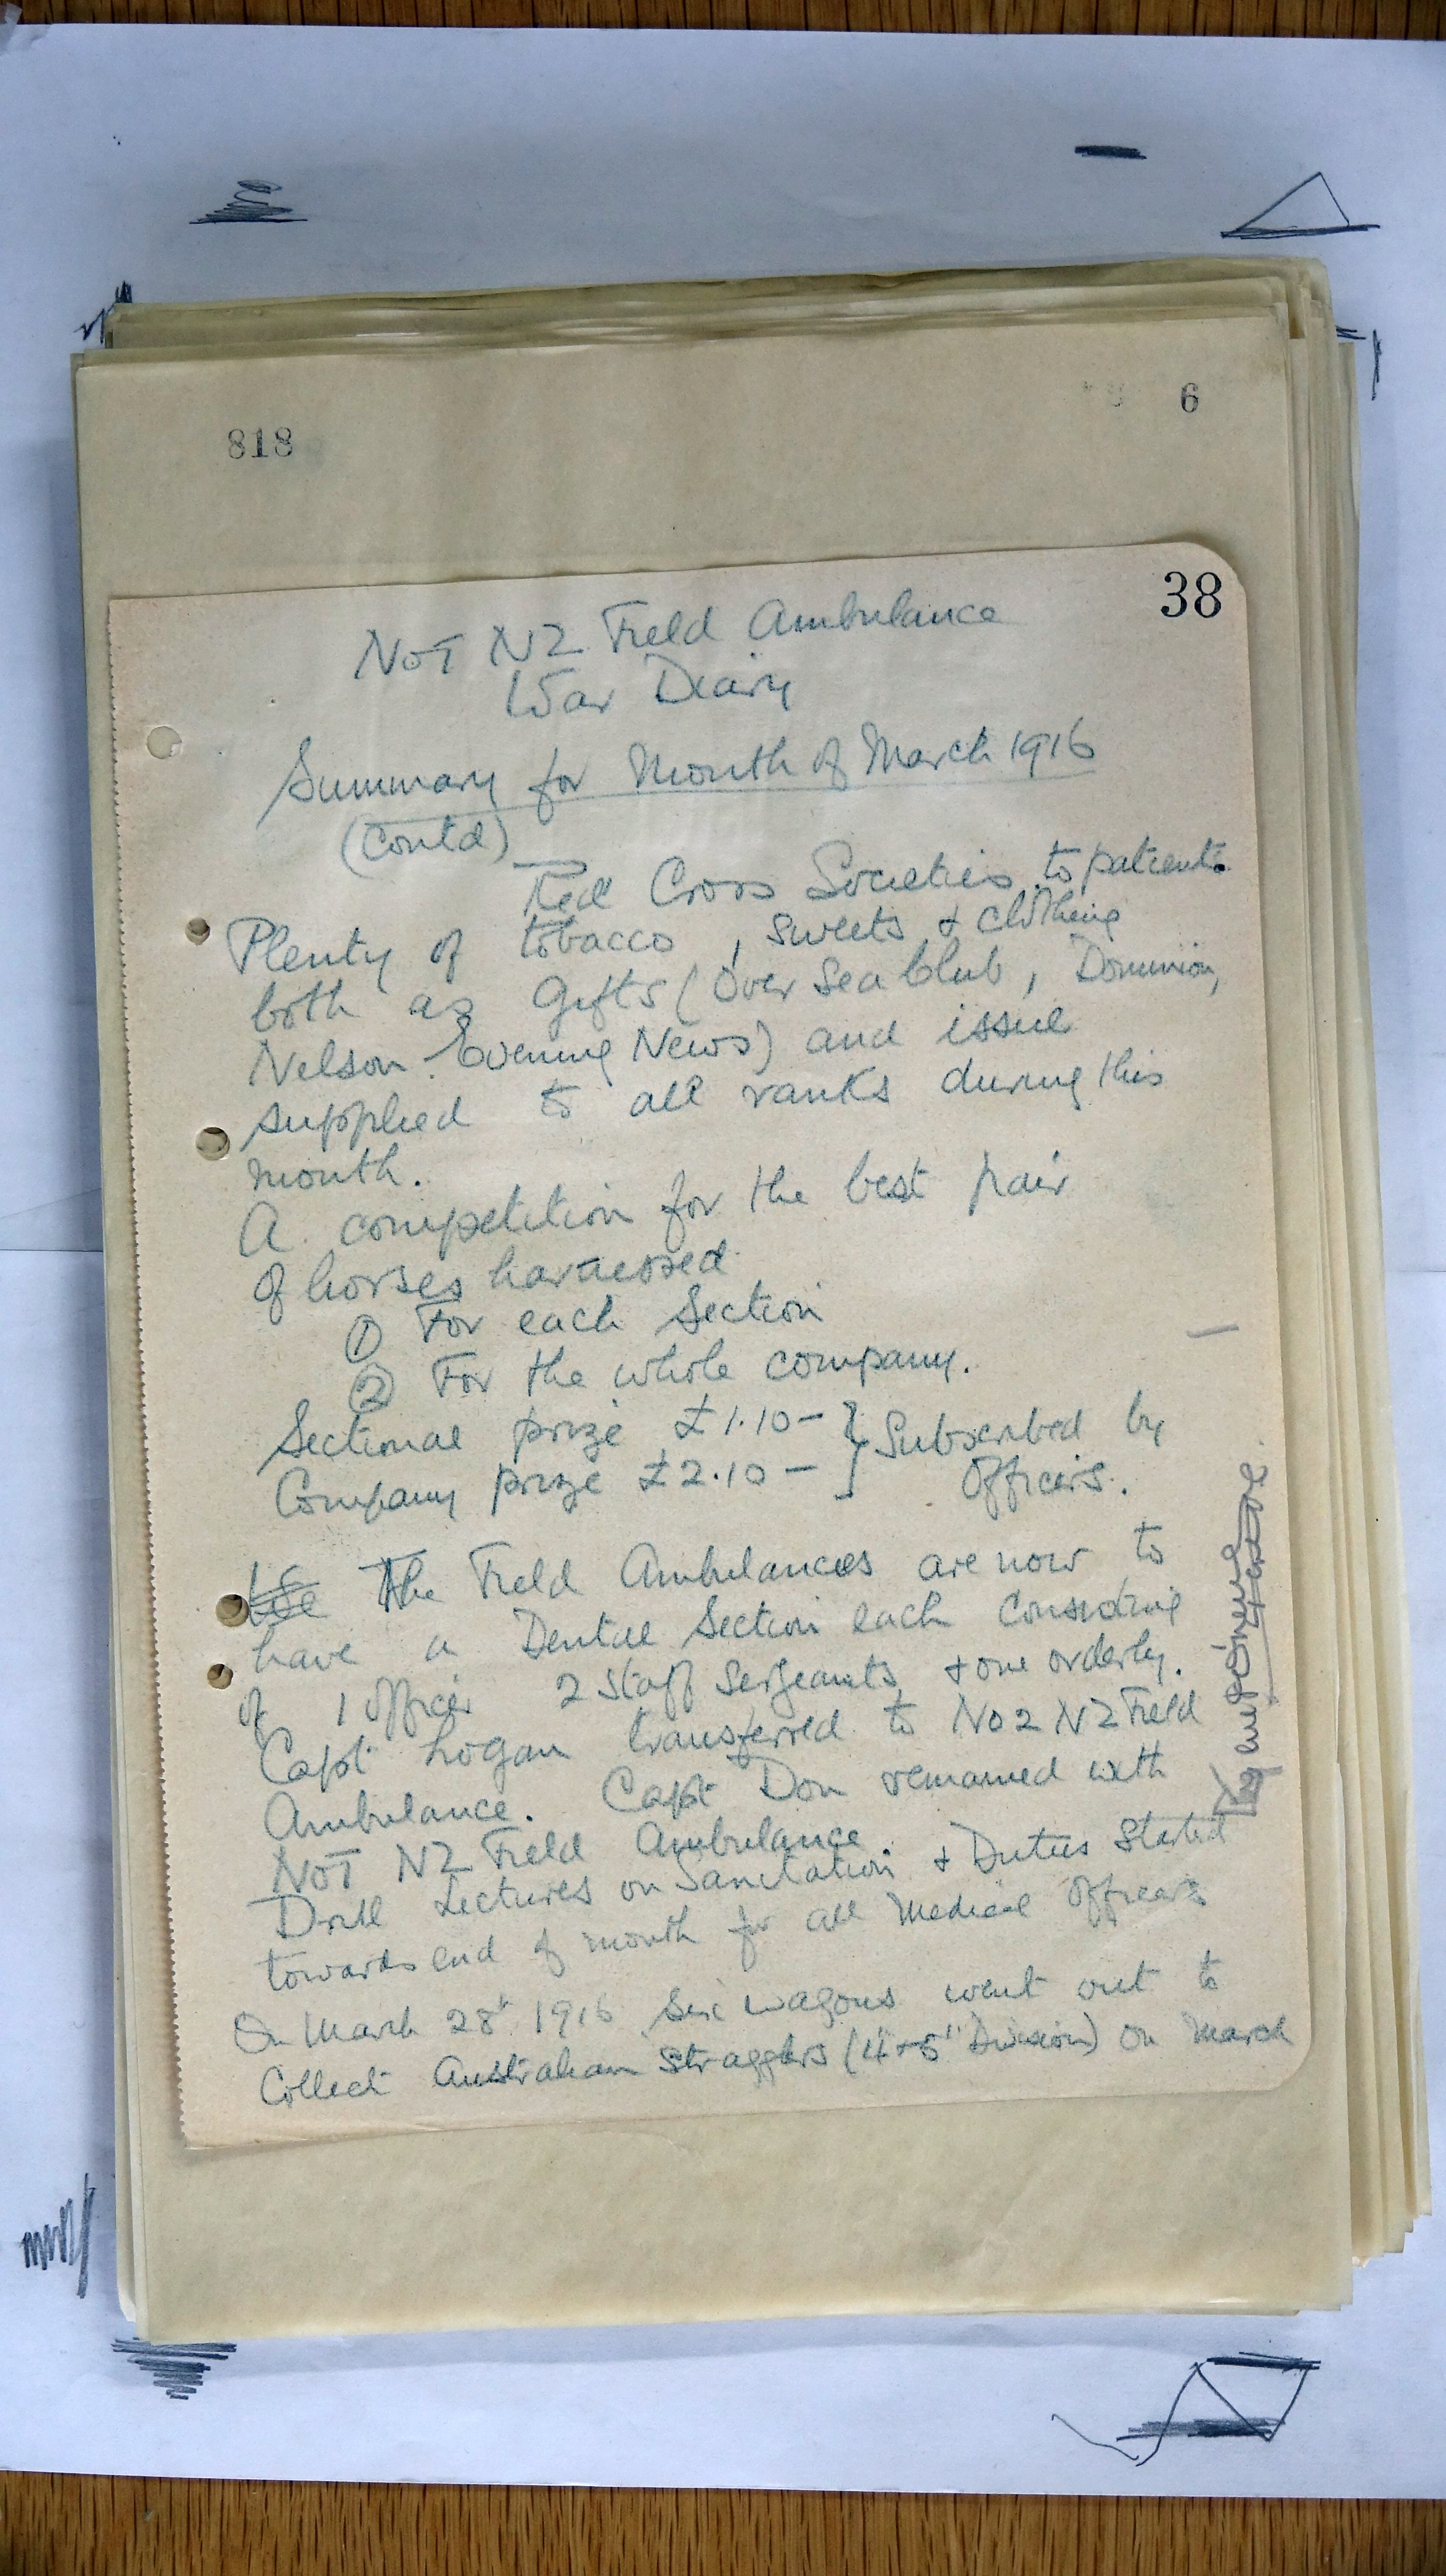 818
6
38
No 1 NZ Field Ambulance
War Diary
Summary for Month of March 1916
(Contd)
Red Cross Societies to patients.
Plenty of tobacco, sweets & clothing
both as Gifts (Over Sea Club, Dominion,
Nelson Evening News) and issue
supplied to all ranks during this
month.
A competition for the best pair
of horses harnessed
① For each Section
② For the whole company.
Sectional prize £1.10 – } Subscribed by
Company prize £2.10 – } Officers.
The Field Ambulances are now to
have a Dental Section each consisting
of 1 officer 2 Staff Sergeants & one orderly.
Capt Logan transferred to No 2 NZ Field
Ambulance. Capt Don remained with
No 1 NZ Field Ambulance.
Drill Lectures on Sanitation & Duties started
towards end of month for all Medical Officers
On March 28th 1916 six wagons went out to
Collect Australian Stragglers (4th & 5th Division) on March